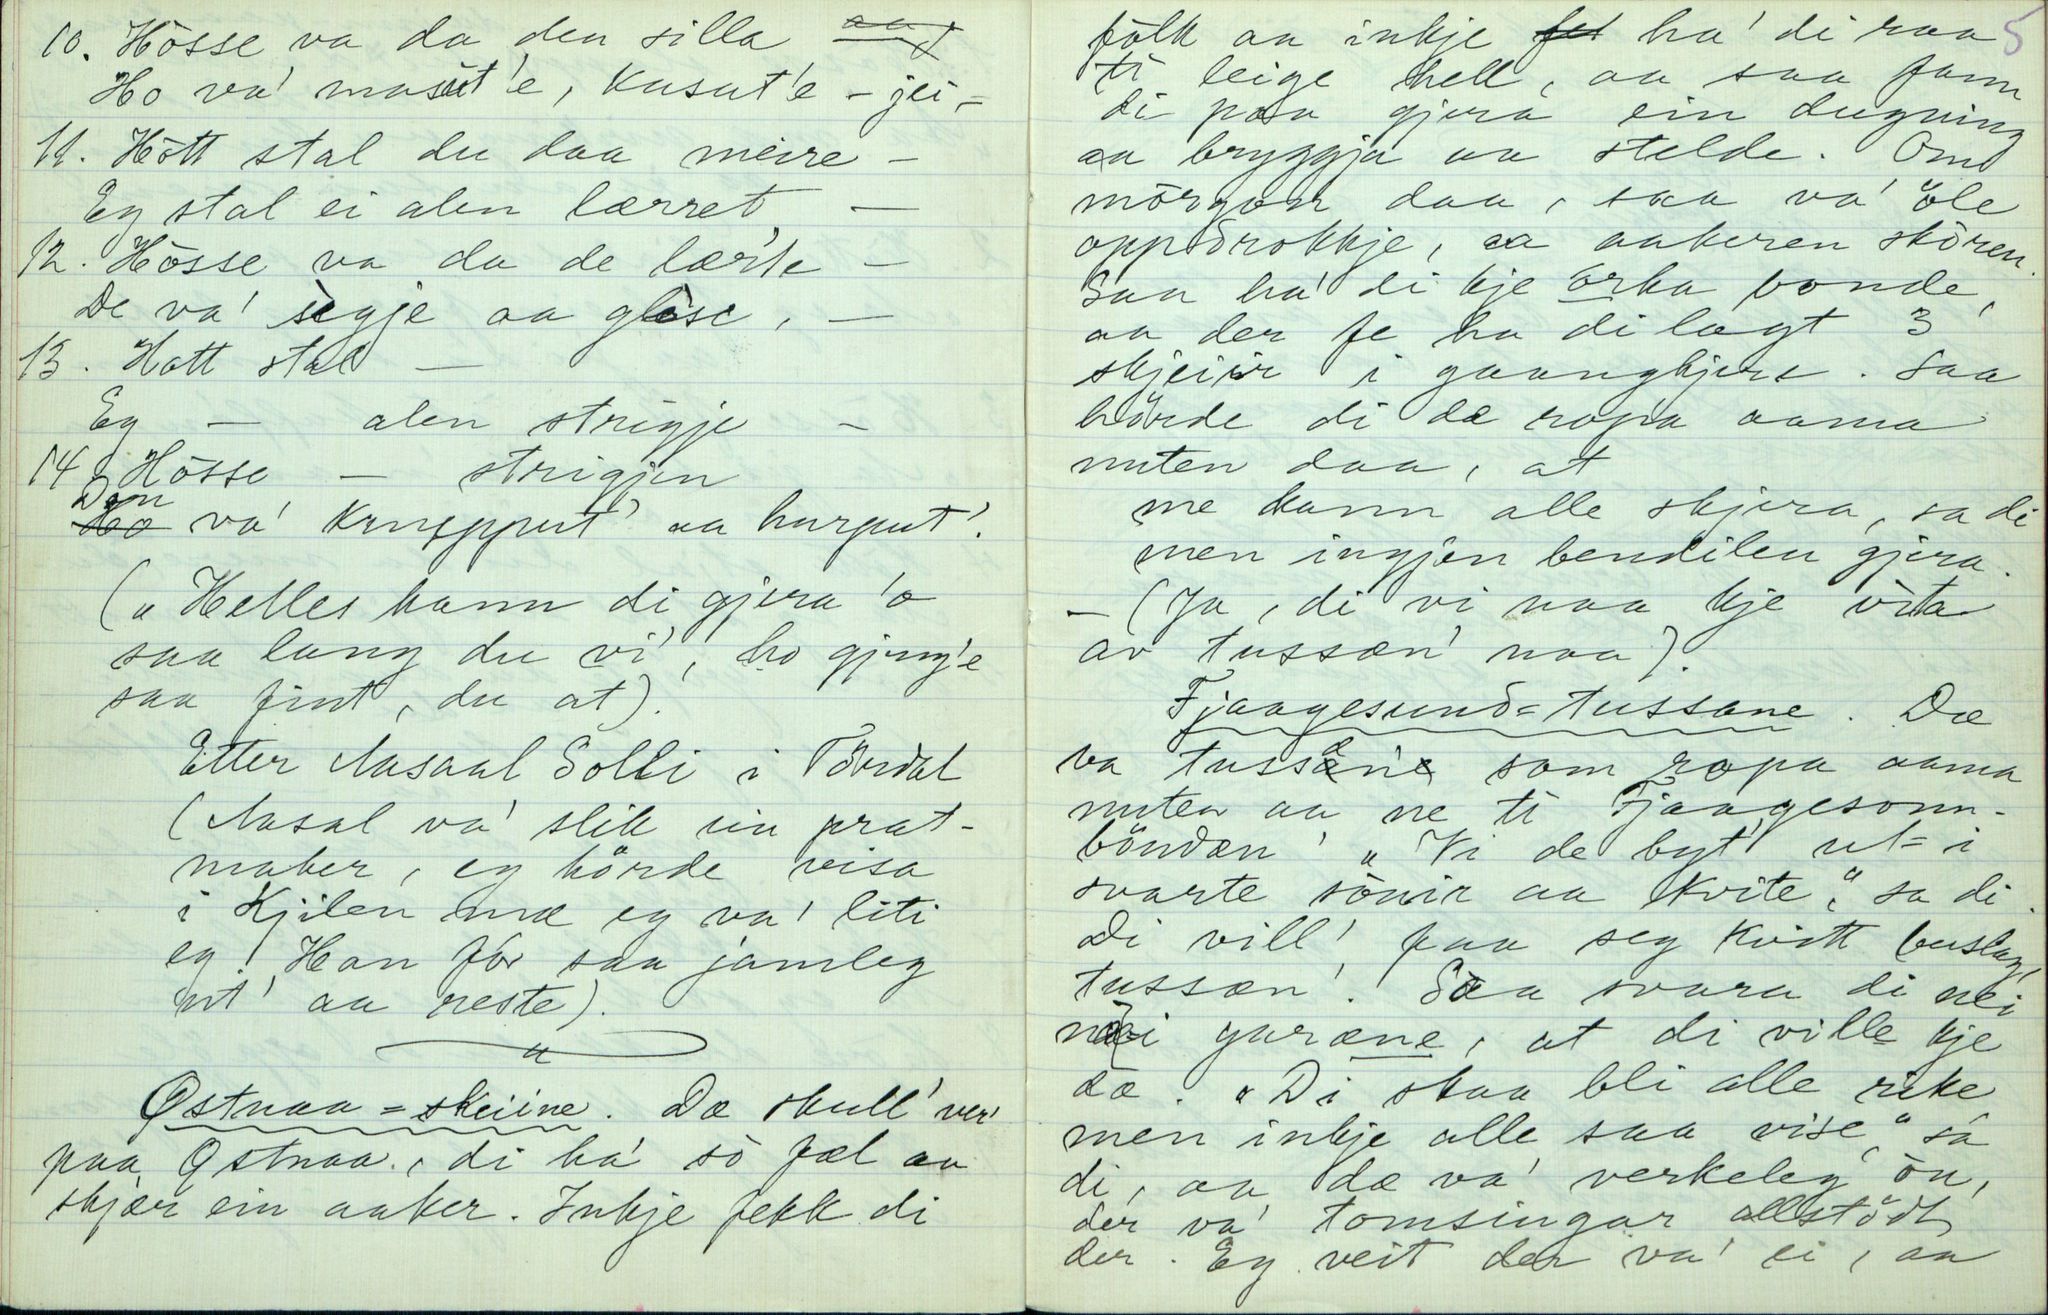 10. Hòsse va da den silla
Ho va' masut'e, kasut'e - jei -
11. Hòtt stal du daa meire -
Eg stal ei alen lærret -
12. Hòsse va da de lærte -
De va' sigje aa glise, -
13. Hott stal -
Eg - alen strigje -
14 Hòsse - strigjen
Den va' knupput' aa hurput'.
(„Helles kann di gjera 'o
saa lang du vi', ho gjeng'e
saa fint, du at).
Etter Aasaal Solli i Tördal
(Aasal va' slik ein prat-
maker, eg hörde visa
i Kjilen mæ eg va' liti
eg. Han för saa jamleg
ut' aa reste).
Østnaa=skeiine. Dæ skull' ver'
paa Østnaa, di ha' sò fæl aa
skjær ein aaker. Inkje fekk di
5
fölk aa inkje ha' di raa
ti leige hell, aa saa fann
di paa gjera ein dugning
aa bryggja aa stelde. Om
mörgon daa, saa va' öle
oppdrokkje, aa aakeren skören.
Saa ha' di kje örka vonde,
aa der fe ha di lagt 3
skjeiir i gaangkjere. Saa
hörde di dæ ropa aama
nuten daa, at
me kann alle skjera, sa di
men ingjen bendilen gjera.
- (Ja, di vi naa kje vita
av tussæn' naa).
Fjaagesund=tussane. Dæ
va tussane som ropa aama
nuten aa ne ti Fjaagesonn-
böndæn' „Vi de byt' ut= i
svarte sönir aa kvite," sa di.
Di vill' faa seg kvitt buslag,
tussæn'. Saa svara di nei
nei garæne, at di ville kje
dæ. „Di skaa bli alle rike
men inkje alle saa vise," sa
di, aa dæ va' verkeleg òn,
der va' tomsingar allstödt
der. Eg veit der va' ei, aa